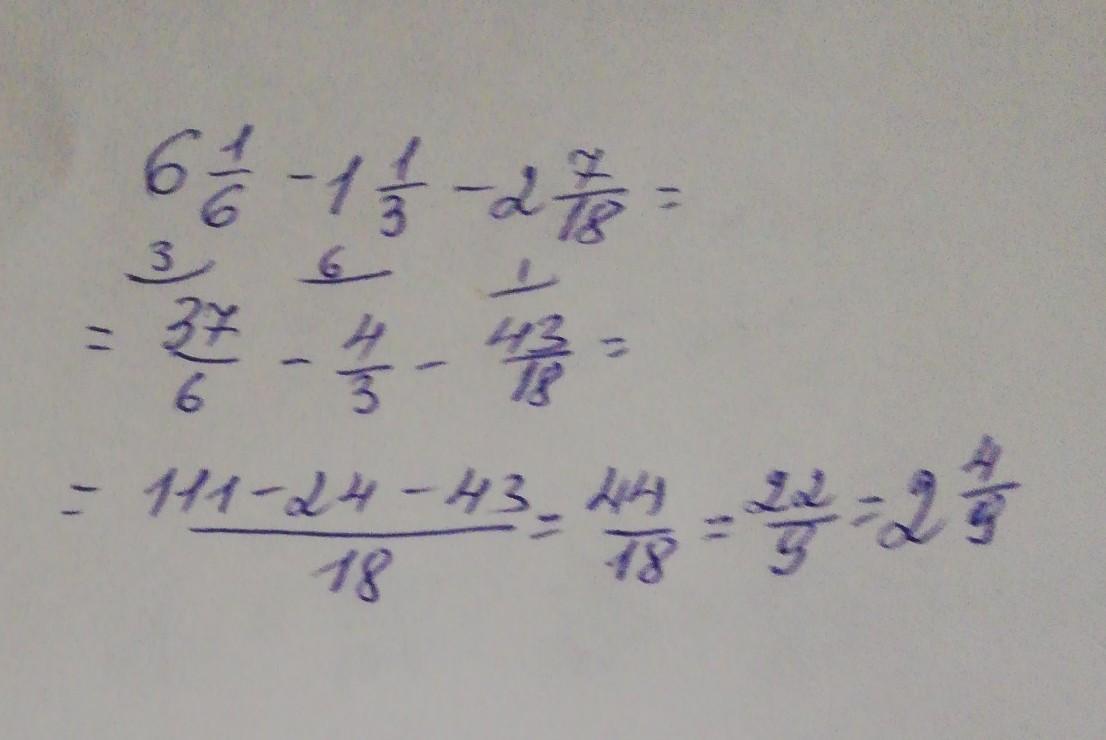 6 1/6 - 1 1/3 - 2 7/18 =
3 6 1
= 37/6 - 4/3 - 43/18 =
= 111 - 24 - 43/18 = 44/18 = 22/9 = 2 4/9